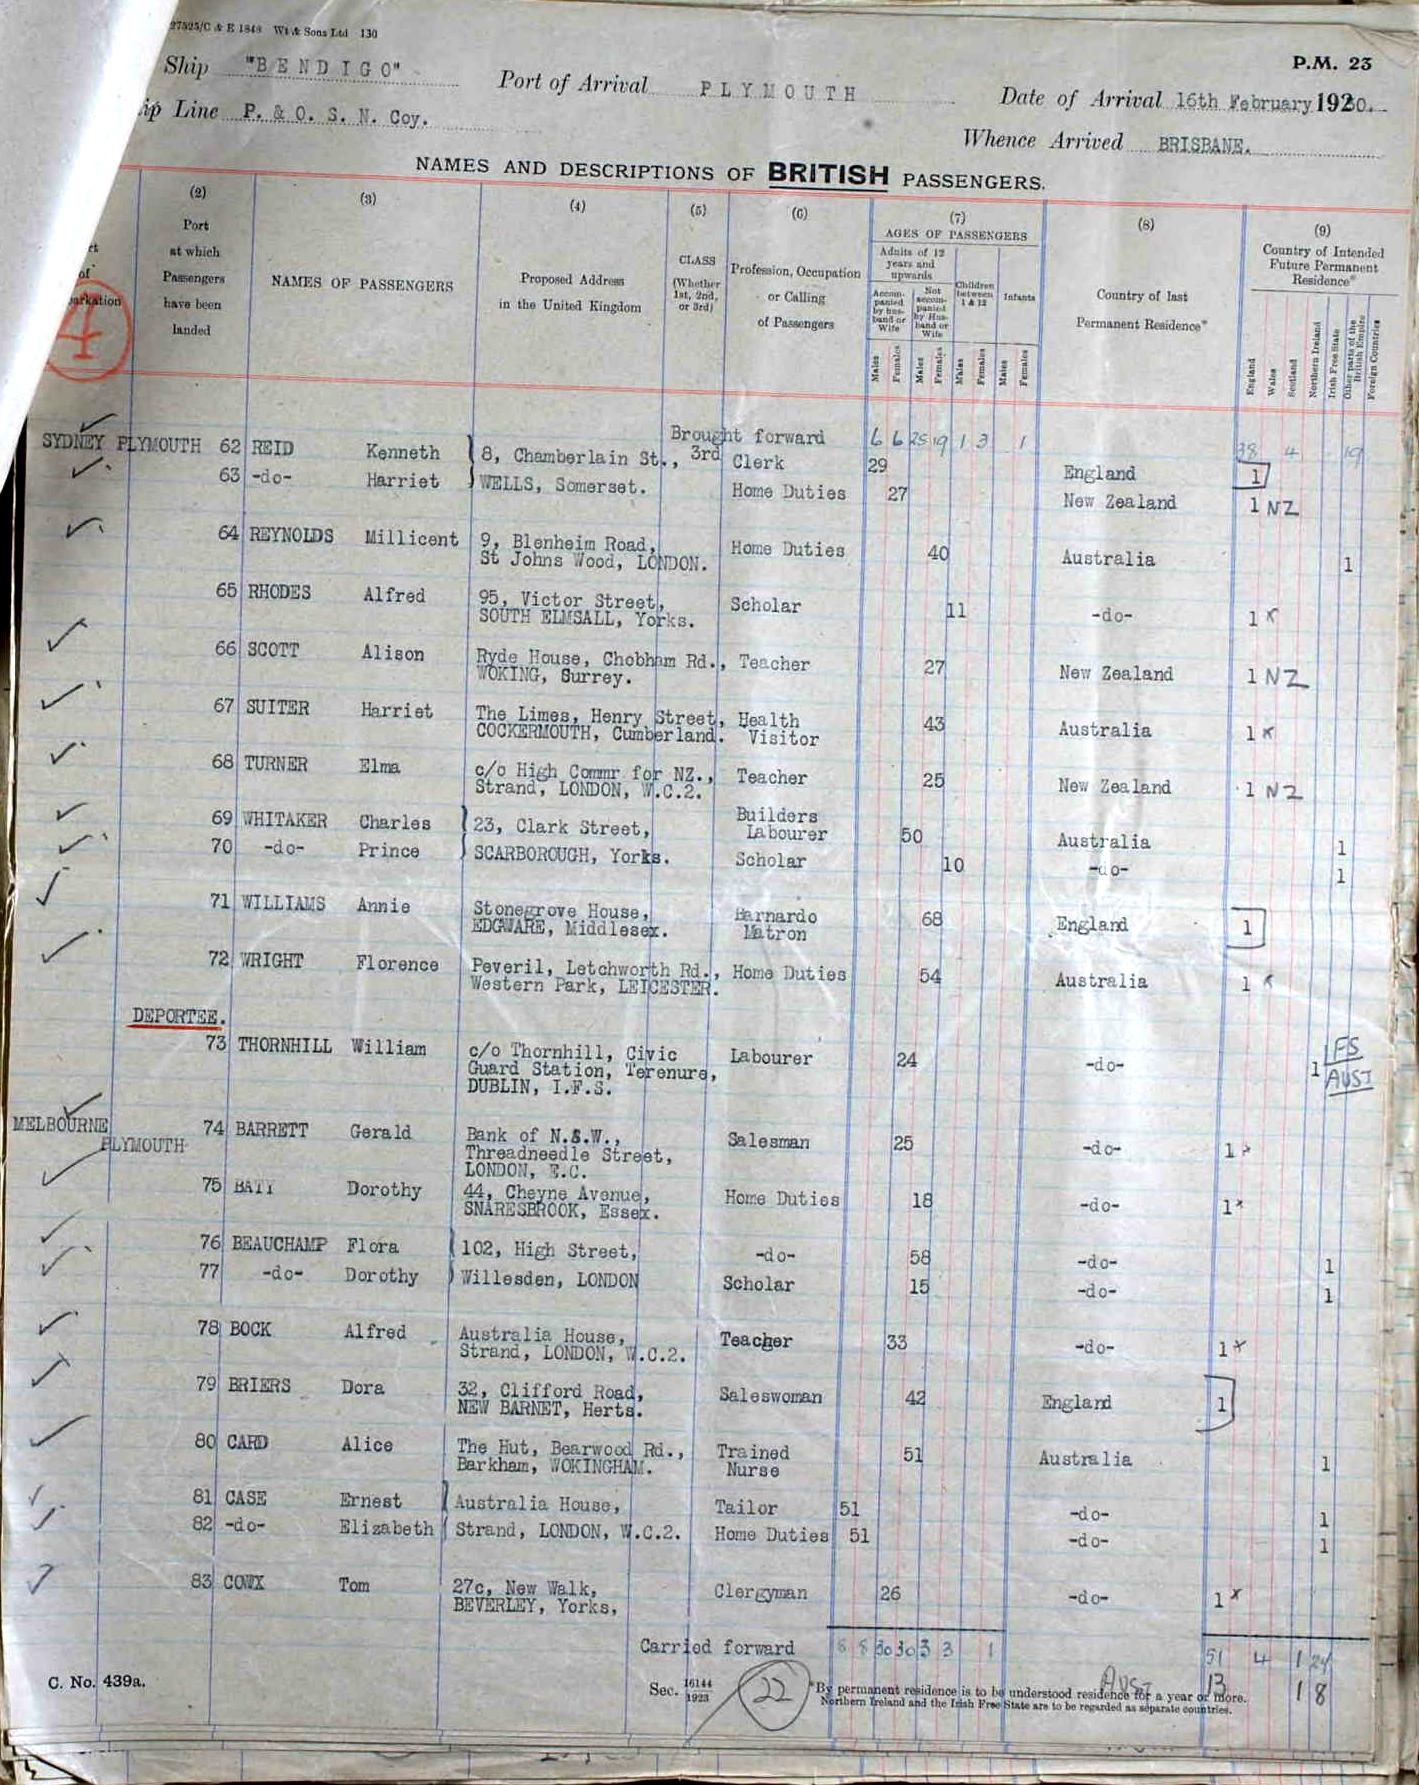 27525/C & E 1848 Wt & Sons Ltd 130
P.M. 23
Ship "BENDIGO" Port of Arrival PLYMOUTH Date of Arrival 16th February 1930.
ip Line P. & O. S. N. Coy. Whence Arrived BRISBANE.
NAMES AND DESCRIPTIONS OF BRITISH PASSENGERS.
(2) (3) (4) (5) (6) (7) (8) (9)
Port at which Passengers have been landed
NAMES OF PASSENGERS
Proposed Address in the United Kingdom
CLASS (Whether 1st, 2nd, or 3rd)
Profession, Occupation or Calling of Passengers
AGES OF PASSENGERS
Adults of 12 years and upwards
Accompanied by husband or Wife
Not accompanied by Husband or Wife
Children between 1 & 12
Infants
Males Females Males Females Males Females Males Females
Country of last Permanent Residence*
Country of Intended Future Permanent Residence*
England Wales Scotland Northern Ireland Irish Free State Other parts of the British Empire Foreign Countries
4
Brought forward 6 6 25 19 1 3 1 38 4 19
SYDNEY PLYMOUTH 62 REID Kenneth 8, Chamberlain St., 3rd Clerk 29 England 1
63 -do- Harriet WELLS, Somerset. Home Duties 27 New Zealand 1 NZ
64 REYNOLDS Millicent 9, Blenheim Road, Home Duties 40 Australia 1
St Johns Wood, LONDON.
65 RHODES Alfred 95, Victor Street, Scholar 11 -do- 1 x
SOUTH ELMSALL, Yorks.
66 SCOTT Alison Ryde House, Chobham Rd., Teacher 27 New Zealand 1 NZ
WOKING, Surrey.
67 SUITER Harriet The Limes, Henry Street, Health 43 Australia 1 x
COCKERMOUTH, Cumberland. Visitor
68 TURNER Elma c/o High Commr for NZ., Teacher 25 New Zealand 1 NZ
Strand, LONDON, W.C.2.
69 WHITAKER Charles 23, Clark Street, Builders Labourer 50 Australia 1
70 -do- Prince SCARBOROUGH, Yorks. Scholar 10 -do- 1
71 WILLIAMS Annie Stonegrove House, Barnardo 68 England 1
EDGWARE, Middlesex. Matron
72 WRIGHT Florence Peveril, Letchworth Rd., Home Duties 54 Australia 1 x
Western Park, LEICESTER.
DEPORTEE.
73 THORNHILL William c/o Thornhill, Civic Labourer 24 -do- 1 IFS
Guard Station, Terenure, AUST
DUBLIN, I.F.S.
MELBOURNE 74 BARRETT Gerald Bank of N.S.W., Salesman 25 -do- 1 x
PLYMOUTH Threadneedle Street,
LONDON, E.C.
75 BATT Dorothy 44, Cheyne Avenue, Home Duties 18 -do- 1 x
SNARESBROOK, Essex.
76 BEAUCHAMP Flora 102, High Street, -do- 58 -do- 1
77 -do- Dorothy Willesden, LONDON Scholar 15 -do- 1
78 BOCK Alfred Australia House, Teacher 33 -do- 1 x
Strand, LONDON, W.C.2.
79 BRIERS Dora 32, Clifford Road, Saleswoman 42 England 1
NEW BARNET, Herts.
80 CARD Alice The Hut, Bearwood Rd., Trained 51 Australia 1
Barkham, WOKINGHAM. Nurse
81 CASE Ernest Australia House, Tailor 51 -do- 1
82 -do- Elizabeth Strand, LONDON, W.C.2. Home Duties 51 -do- 1
83 COWX Tom 27c, New Walk, Clergyman 26 -do- 1 x
BEVERLEY, Yorks,
Carried forward 8 8 30 30 3 3 1 51 4 1 24
AUST 13 1 8
C. No. 439a. Sec. 16144/1923 22
*By permanent residence is to be understood residence for a year or more.
Northern Ireland and the Irish Free State are to be regarded as separate countries.